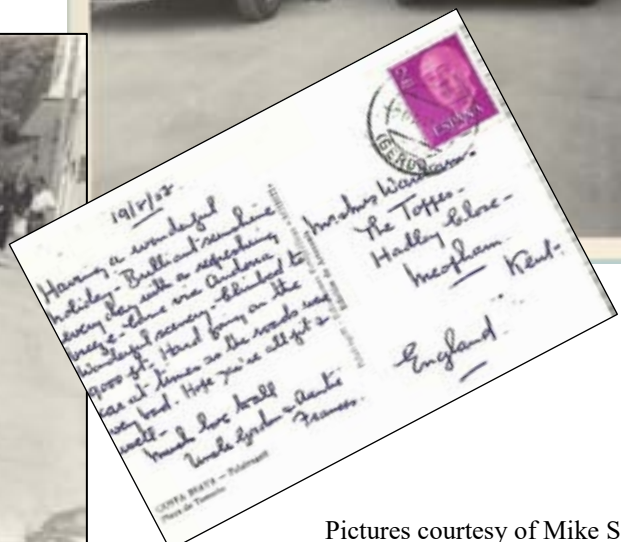 Having a wonderful
holiday - Brilliant sunshine
every day with a refreshing
breeze. Came via Andorra
Wonderful scenery - Climbed to
9000 ft. Hard going on the
car at times as the roads were
very bad. Hope you're all fit &
well -
Much love to all
Uncle Gordon & Auntie
Frances.
COSTA BRAVA –
ESPAÑA
Mr & Mrs
The
Hadley Close -
Meopham
Kent -
England
Pictures courtesy of Mike S